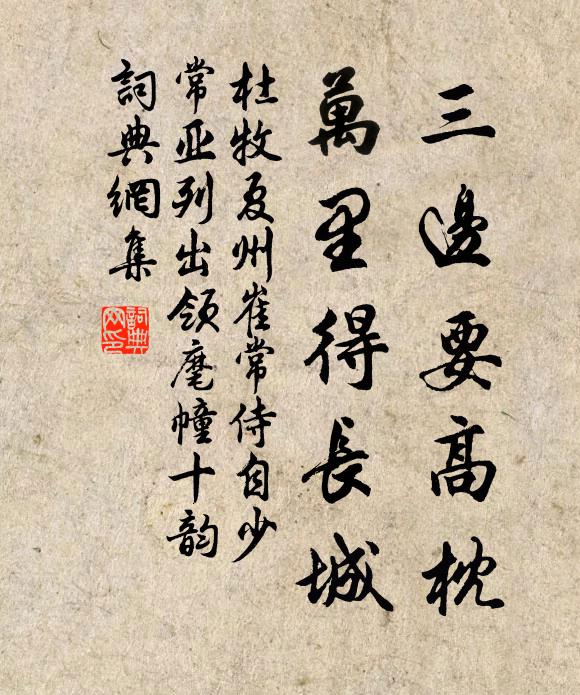 三邊要高枕
萬里得長城
杜牧夏州崔常侍自少
常亚列出領麾幢十韵
詞典網集
詞典
网印